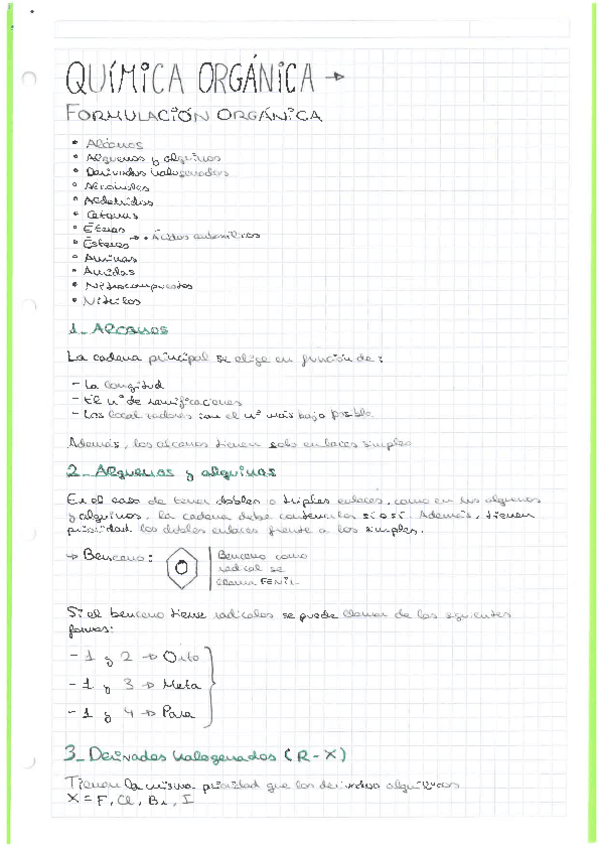 QUÍMICA ORGÁNICA →
FORMULACIÓN ORGÁNICA
• Alcanos
• Alquenos y alquinos
• Derivados halogenados
• Alcoholes
• Aldehídos
• Cetonas
• Éteres
• Ésteres → • Ácidos carboxílicos
• Aminas
• Amidas
• Nitrocompuestos
• Nitrilos
1_ Alcanos
La cadena principal se elige en función de:
- La longitud
- El nº de ramificaciones
- Los localizadores con el nº más bajo posible
Además, los alcanos tienen solo enlaces simples
2_ Alquenos y alquinos
En el caso de tener dobles o triples enlaces, como en los alquenos
y alquinos, la cadena debe contenerlos sí o sí. Además, tienen
prioridad los dobles enlaces frente a los simples.
→ Benceno:
Benceno como
radical se
llama FENIL
Si el benceno tiene radicales se puede llamar de las siguientes
formas:
- 1 y 2 → Orto
- 1 y 3 → Meta
- 1 y 4 → Para
3_ Derivados halogenados (R-X)
Tienen la misma prioridad que los derivados alquílicos
X = F, Cl, Br, I